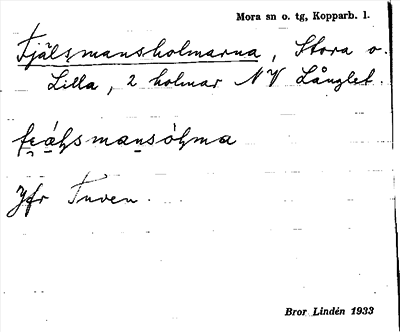 Mora sn o. tg, Kopparb. l.
Fjälsmansholmarna, Stora o.
Lilla, 2 holmar NV Långlet.
Jfr Tuven.
Bror Lindén 1933